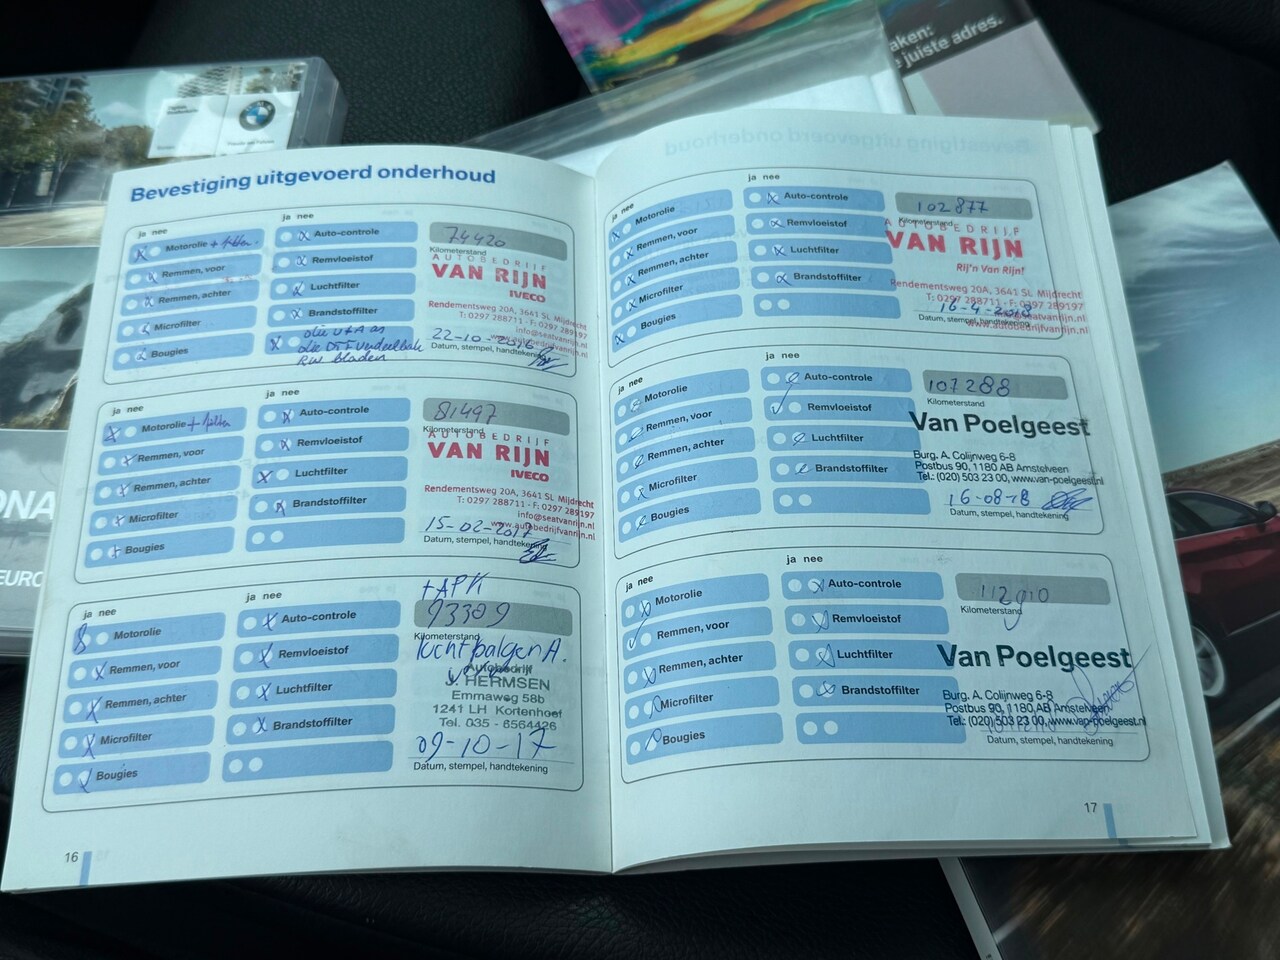 aken:
juiste adres.
Bevestiging uitgevoerd onderhoud
ja nee
Motorolie + filter
Remmen, voor
Remmen, achter
Microfilter
Bougies
ja nee
Auto-controle
Remvloeistof
Luchtfilter
Brandstoffilter
olie V+A as
olie
RW bladen
74420
Kilometerstand
AUTOBEDRIJF
VAN RIJN
IVECO
Rendementsweg 20A, 3641 SL Mijdrecht
T: 0297 288711 - F: 0297 289197
info@seatvanrijn.nl
www.autobedrijfvanrijn.nl
22-10-2016
Datum, stempel, handtekening
ja nee
Motorolie + filter
Remmen, voor
Remmen, achter
Microfilter
Bougies
ja nee
Auto-controle
Remvloeistof
Luchtfilter
Brandstoffilter
81497
Kilometerstand
AUTOBEDRIJF
VAN RIJN
IVECO
Rendementsweg 20A, 3641 SL Mijdrecht
T: 0297 288711 - F: 0297 289197
info@seatvanrijn.nl
www.autobedrijfvanrijn.nl
15-02-2017
Datum, stempel, handtekening
ja nee
Motorolie
Remmen, voor
Remmen, achter
Microfilter
Bougies
ja nee
Auto-controle
Remvloeistof
Luchtfilter
Brandstoffilter
+APK
93309
Kilometerstand
luchtbalgen A.
Autobedrijf
J. HERMSEN
Emmaweg 58b
1241 LH Kortenhoef
Tel. 035 - 6564426
09-10-17
Datum, stempel, handtekening
16
ja nee
Motorolie
Remmen, voor
Remmen, achter
Microfilter
Bougies
ja nee
Auto-controle
Remvloeistof
Luchtfilter
Brandstoffilter
102877
Kilometerstand
AUTOBEDRIJF
VAN RIJN
Rij'n Van Rijn!
Rendementsweg 20A, 3641 SL Mijdrecht
T: 0297 288711 - F: 0297 289197
16-4-2018
www.autobedrijfvanrijn.nl
Datum, stempel, handtekening
ja nee
Motorolie
Remmen, voor
Remmen, achter
Microfilter
Bougies
ja nee
Auto-controle
Remvloeistof
Luchtfilter
Brandstoffilter
107288
Kilometerstand
Van Poelgeest
Burg. A. Colijnweg 6-8
Postbus 90, 1180 AB Amstelveen
Tel.: (020) 503 23 00, www.van-poelgeest.nl
16-08-18
Datum, stempel, handtekening
ja nee
Motorolie
Remmen, voor
Remmen, achter
Microfilter
Bougies
ja nee
Auto-controle
Remvloeistof
Luchtfilter
Brandstoffilter
Kilometerstand
Van Poelgeest
Burg. A. Colijnweg 6-8
Postbus 90, 1180 AB Amstelveen
Tel.: (020) 503 23 00, www.van-poelgeest.nl
Datum, stempel, handtekening
17